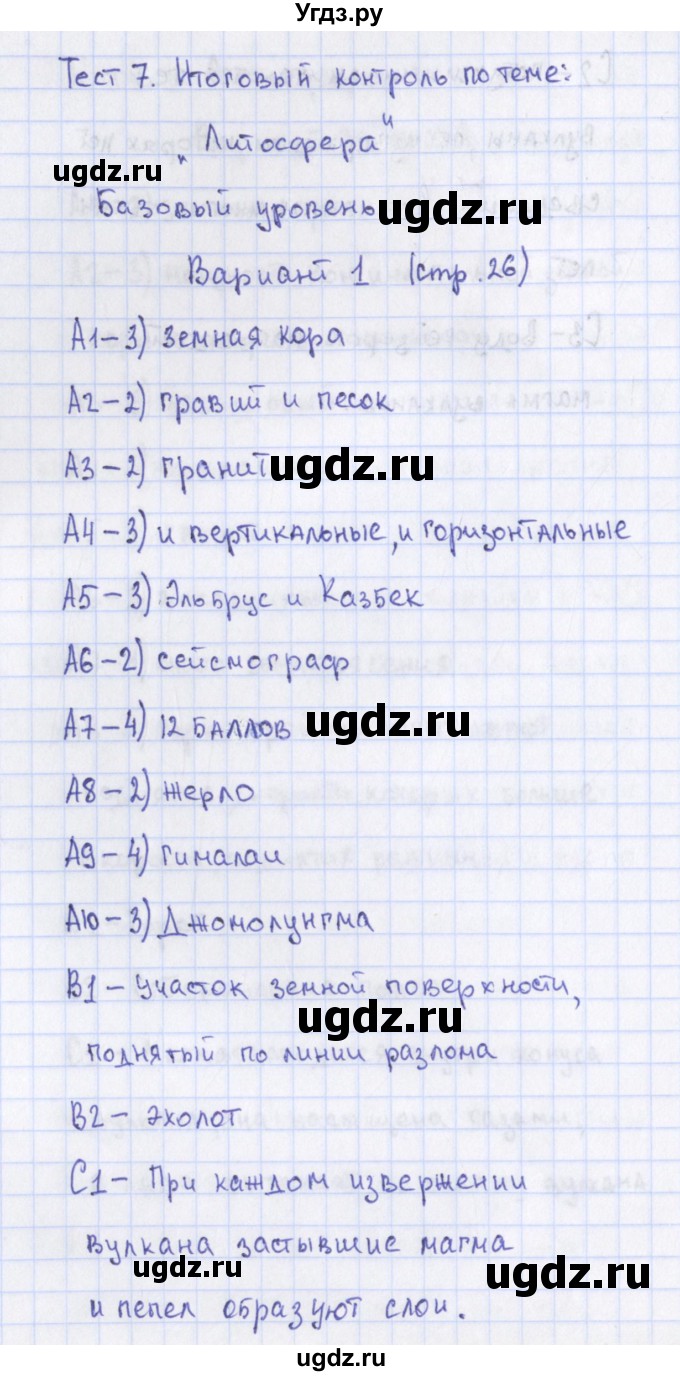 Угдз.ру
Тест 7. Итоговый контроль по теме:
"Литосфера"
ugdz.ru
Базовый уровень ugdz.ru
Вариант 1 (стр. 26)
А1-3) земная кора
А2-2) гравий и песок
А3-2) гранит ugdz.ru
А4-3) и вертикальные, и горизонтальные
А5-3) Эльбрус и Казбек
А6-2) сейсмограф
А7-4) 12 баллов ugdz.ru
А8-2) жерло
А9-4) гималаи
А10-3) Джомолунгма
В1- Участок земной поверхности,
ugdz.ru
поднятый по линии разлома
В2- Эхолот
С1- При каждом извержении
вулкана застывшие магма
ugdz.ru
ugdz.ru
и пепел образуют слои.
ugdz.ru